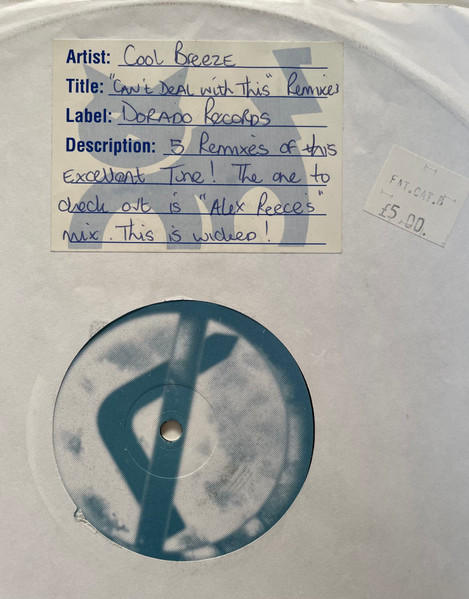 Artist: Cool Breeze
Title: "Can't Deal with This" Remixes
Label: Dorado Records
Description: 5 Remixes of this
Excellent Tune! The one to
check out is "Alex Reece's"
mix. This is wicked!
FAT.CAT.R
£5.00.